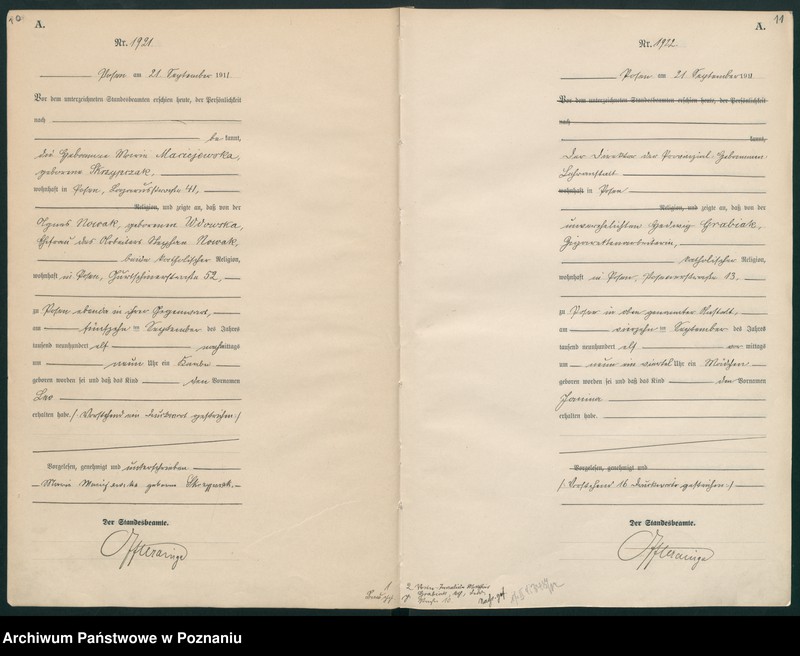 A.
Nr. 1921
Posen am 21. September 1911.
Vor dem unterzeichneten Standesbeamten erschien heute, der Persönlichkeit
nach
be kannt,
die Hebamme Maria Maciejewska,
geborene Skrzypczak,
wohnhaft in Posen, 41,
Religion, und zeigte an, daß von der
Agnes Nowak, geborenen Wdowska,
Ehefrau des Arbeiters Stephan Nowak,
beide katholischer Religion,
wohnhaft in Posen, Gurtschinerstraße 52,
zu Posen ebenda in ihrer Gegenwart,
am fünfzehn ten September des Jahres
tausend neunhundert elf nachmittags
um neun Uhr ein Knabe
geboren worden sei und daß das Kind den Vornamen
Leo
erhalten habe. /: Vorstehend ein Druckwort gestrichen :/
Vorgelesen, genehmigt und unterschrieben
Maria Maciejewska geborene Skrzypczak.
Der Standesbeamte.
A.
11
Nr. 1922
Posen am 21. September 1911
Vor dem unterzeichneten Standesbeamten erschien heute, der Persönlichkeit
nach
kannt,
Der Direktor der Provinzial-Hebammen
Lehranstalt
wohnhaft in Posen
Religion, und zeigte an, daß von der
unverehelichten Hedwig Grabiak,
Zigarettenarbeiterin,
katholischer Religion,
wohnhaft in Posen, 13.
zu Posen in oben genannter Anstalt,
am vierzehn ten September des Jahres
tausend neunhundert elf vor mittags
um neun ein viertel Uhr ein Mädchen
geboren worden sei und daß das Kind den Vornamen
Janina
erhalten habe.
Vorgelesen, genehmigt und
/: Vorstehend 16 Druckworte gestrichen :/
Der Standesbeamte.
Archiwum Państwowe w Poznaniu